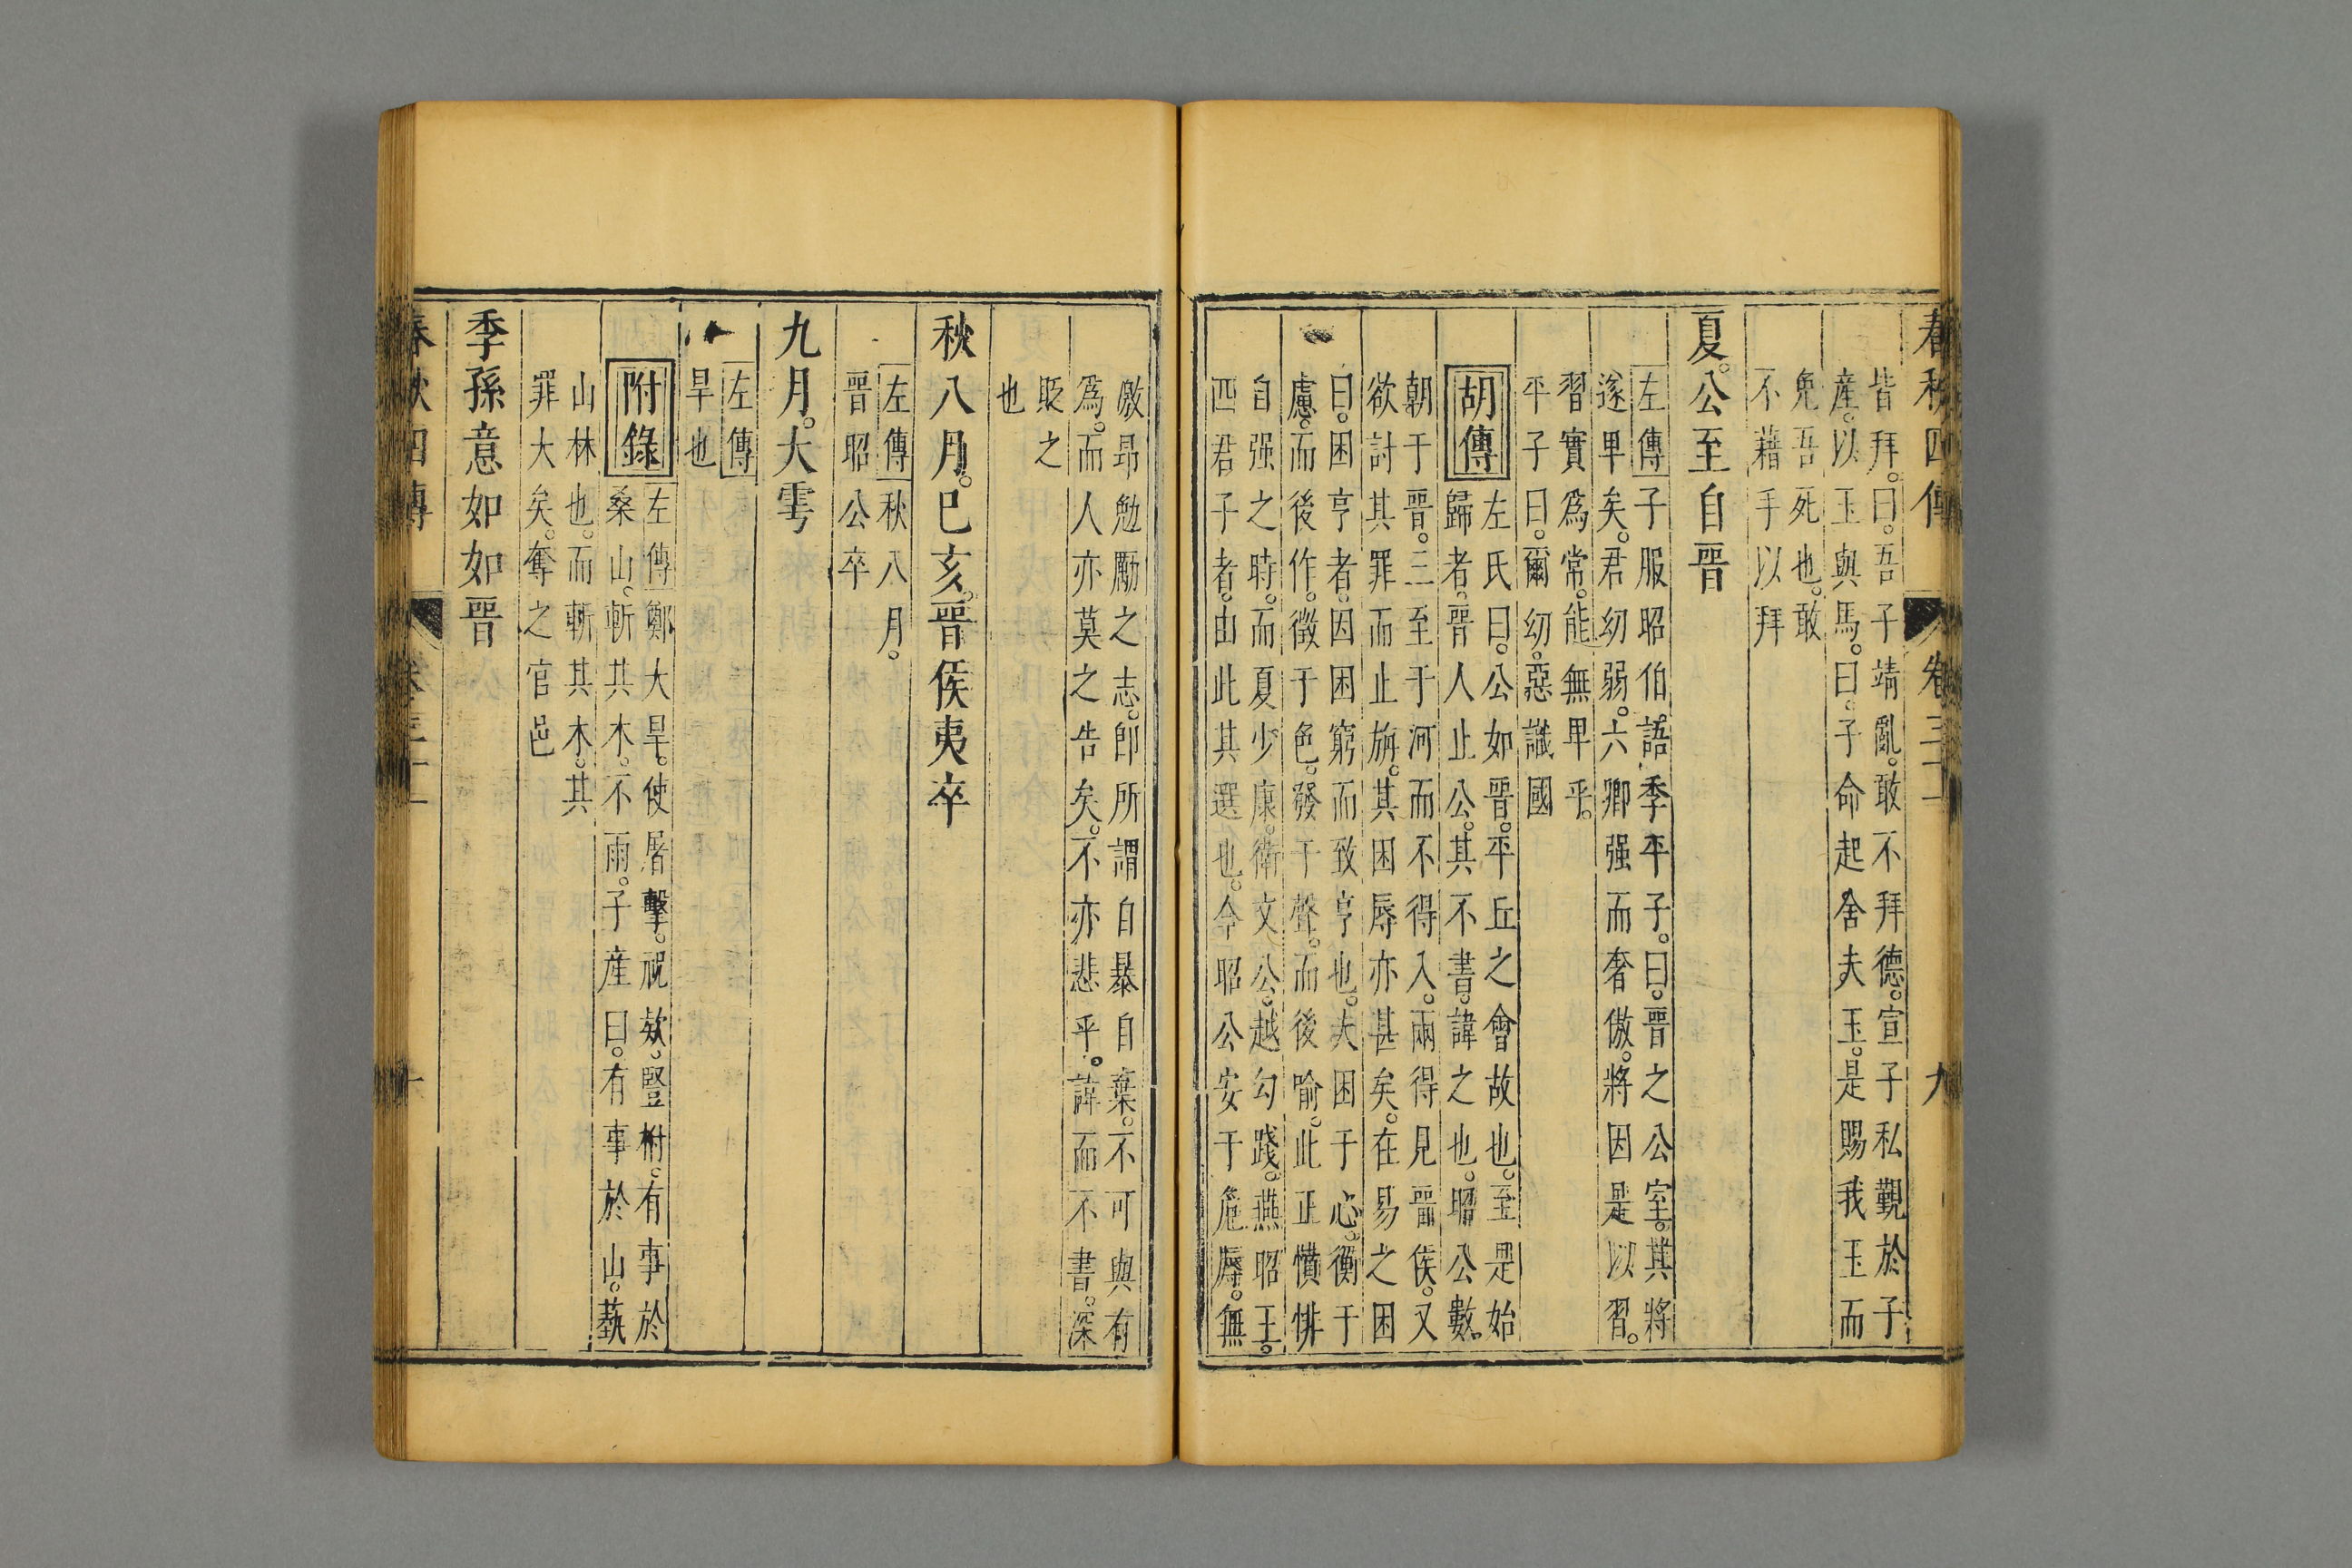 春秋四傳 卷三十一 九
皆拜。曰。吾子靖亂。敢不拜德。宣子私覲於子
産。以玉與馬。曰。子命起舍夫玉。是賜我玉而
免吾死也。敢
不藉手以拜
夏。公至自晉
左傳子服昭伯語季平子。曰。晉之公室。其將
遂卑矣。君幼弱。六卿强而奢傲。將因是以習。
習實爲常。能無卑乎。
平子曰。爾幼。惡識國
胡傳
左氏曰。公如晉。平丘之會故也。至是始
歸者。晉人止公。其不書。諱之也。昭公數
朝于晉。三至于河而不得入。兩得見晉侯。又
欲討其罪而止旃。其困辱亦甚矣。在易之困
曰。困亨者。因困窮而致亨也。夫困于心。衡于
慮。而後作。徵于色。發于聲。而後喻。此正憤悱
自强之時。而夏少康。衛文公。越勾踐。燕昭王。
四君子者。由此其選也。今昭公安于危辱。無
儆昻勉勵之志。卽所謂自暴自棄。不可與有
爲。而人亦莫之告矣。不亦悲乎。諱而不書。深
貶之
也
秋八月。己亥。晉侯夷卒
左傳秋八月。
晉昭公卒
九月。大雩
左傳
旱也
附錄
左傳鄭大旱。使屠擊。祝款。豎柎。有事於
桑山。斬其木。不雨。子産曰。有事於山。蓺
山林也。而斬其木。其
罪大矣。奪之官邑
季孫意如如晉
春秋四傳